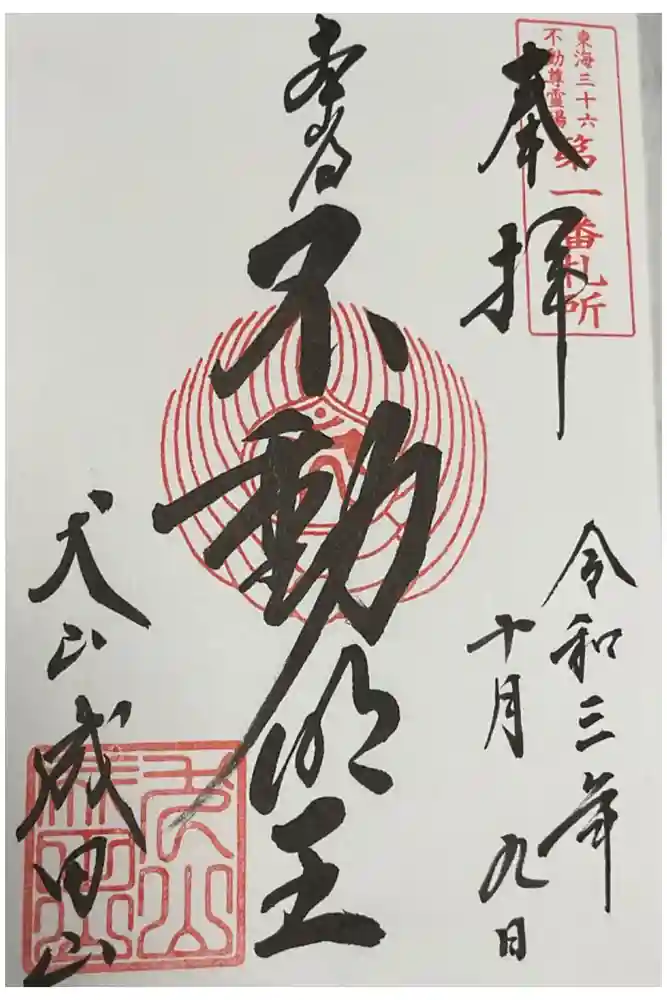 東海三十六
不動尊霊場
第一番札所
奉拝
令和三年
十月九日
本尊
不動明王
犬山成田山